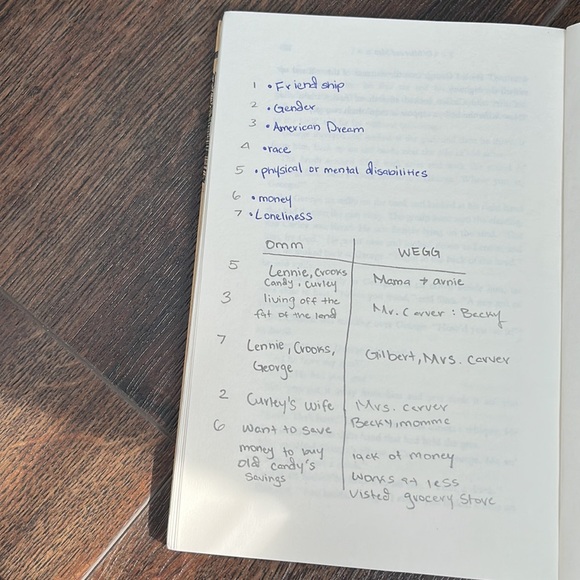 1 • Friendship
2 • Gender
3 • American Dream
4 • race
5 • physical or mental disabilities
6 • money
7 • Loneliness
omm WEGG
5 Lennie, Crooks Mama + arnie
Candy, curley
3 living off the Mr. Carver : Becky
fat of the land
7 Lennie, Crooks, Gilbert, Mrs. Carver
George
2 Curley's wife Mrs. Carver
6 want to save Becky, momma
money to buy lack of money
old candy's works at less
savings visted grocery store